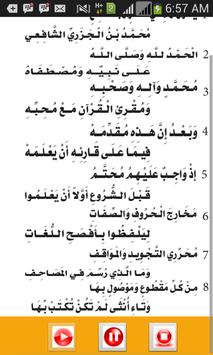 6:57 AM
مُحَمَّدُ بْنُ الْجَزَرِيِّ الشَّافِعِي
2 الْحَمْدُ للَّهِ وَصَلَّى اللَّهُ
عَلَى نَبِيِّهِ وَمُصْطَفَاهُ
3 مُحَمَّدٍ وَآلِهِ وَصَحْبِهِ
وَمُقْرِئِ الْقُرْآنِ مَعْ مُحِبِّهِ
4 وَبَعْدُ إِنَّ هَذِهِ مُقَدِّمَهْ
فِيمَا عَلَى قَارِئِهِ أَنْ يَعْلَمَهْ
5 إِذْ وَاجِبٌ عَلَيْهِمُ مُحَتَّمُ
قَبْلَ الشُّرُوعِ أَوَّلاً أَنْ يَعْلَمُوا
6 مَخَارِجَ الْحُرُوفِ وَالصِّفَاتِ
لِيَلْفِظُوا بِأَفْصَحِ اللُّغَاتِ
7 مُحَرِّرِي التَّجْوِيدِ وَالْمَوَاقِفِ
وَمَا الَّذِي رُسِّمَ فِي الْمَصَاحِفِ
8 مِنْ كُلِّ مَقْطُوعٍ وَمَوْصُولٍ بِهَا
وَتَاءِ أُنْثَى لَمْ تَكُنْ تُكْتَبْ بِهَا